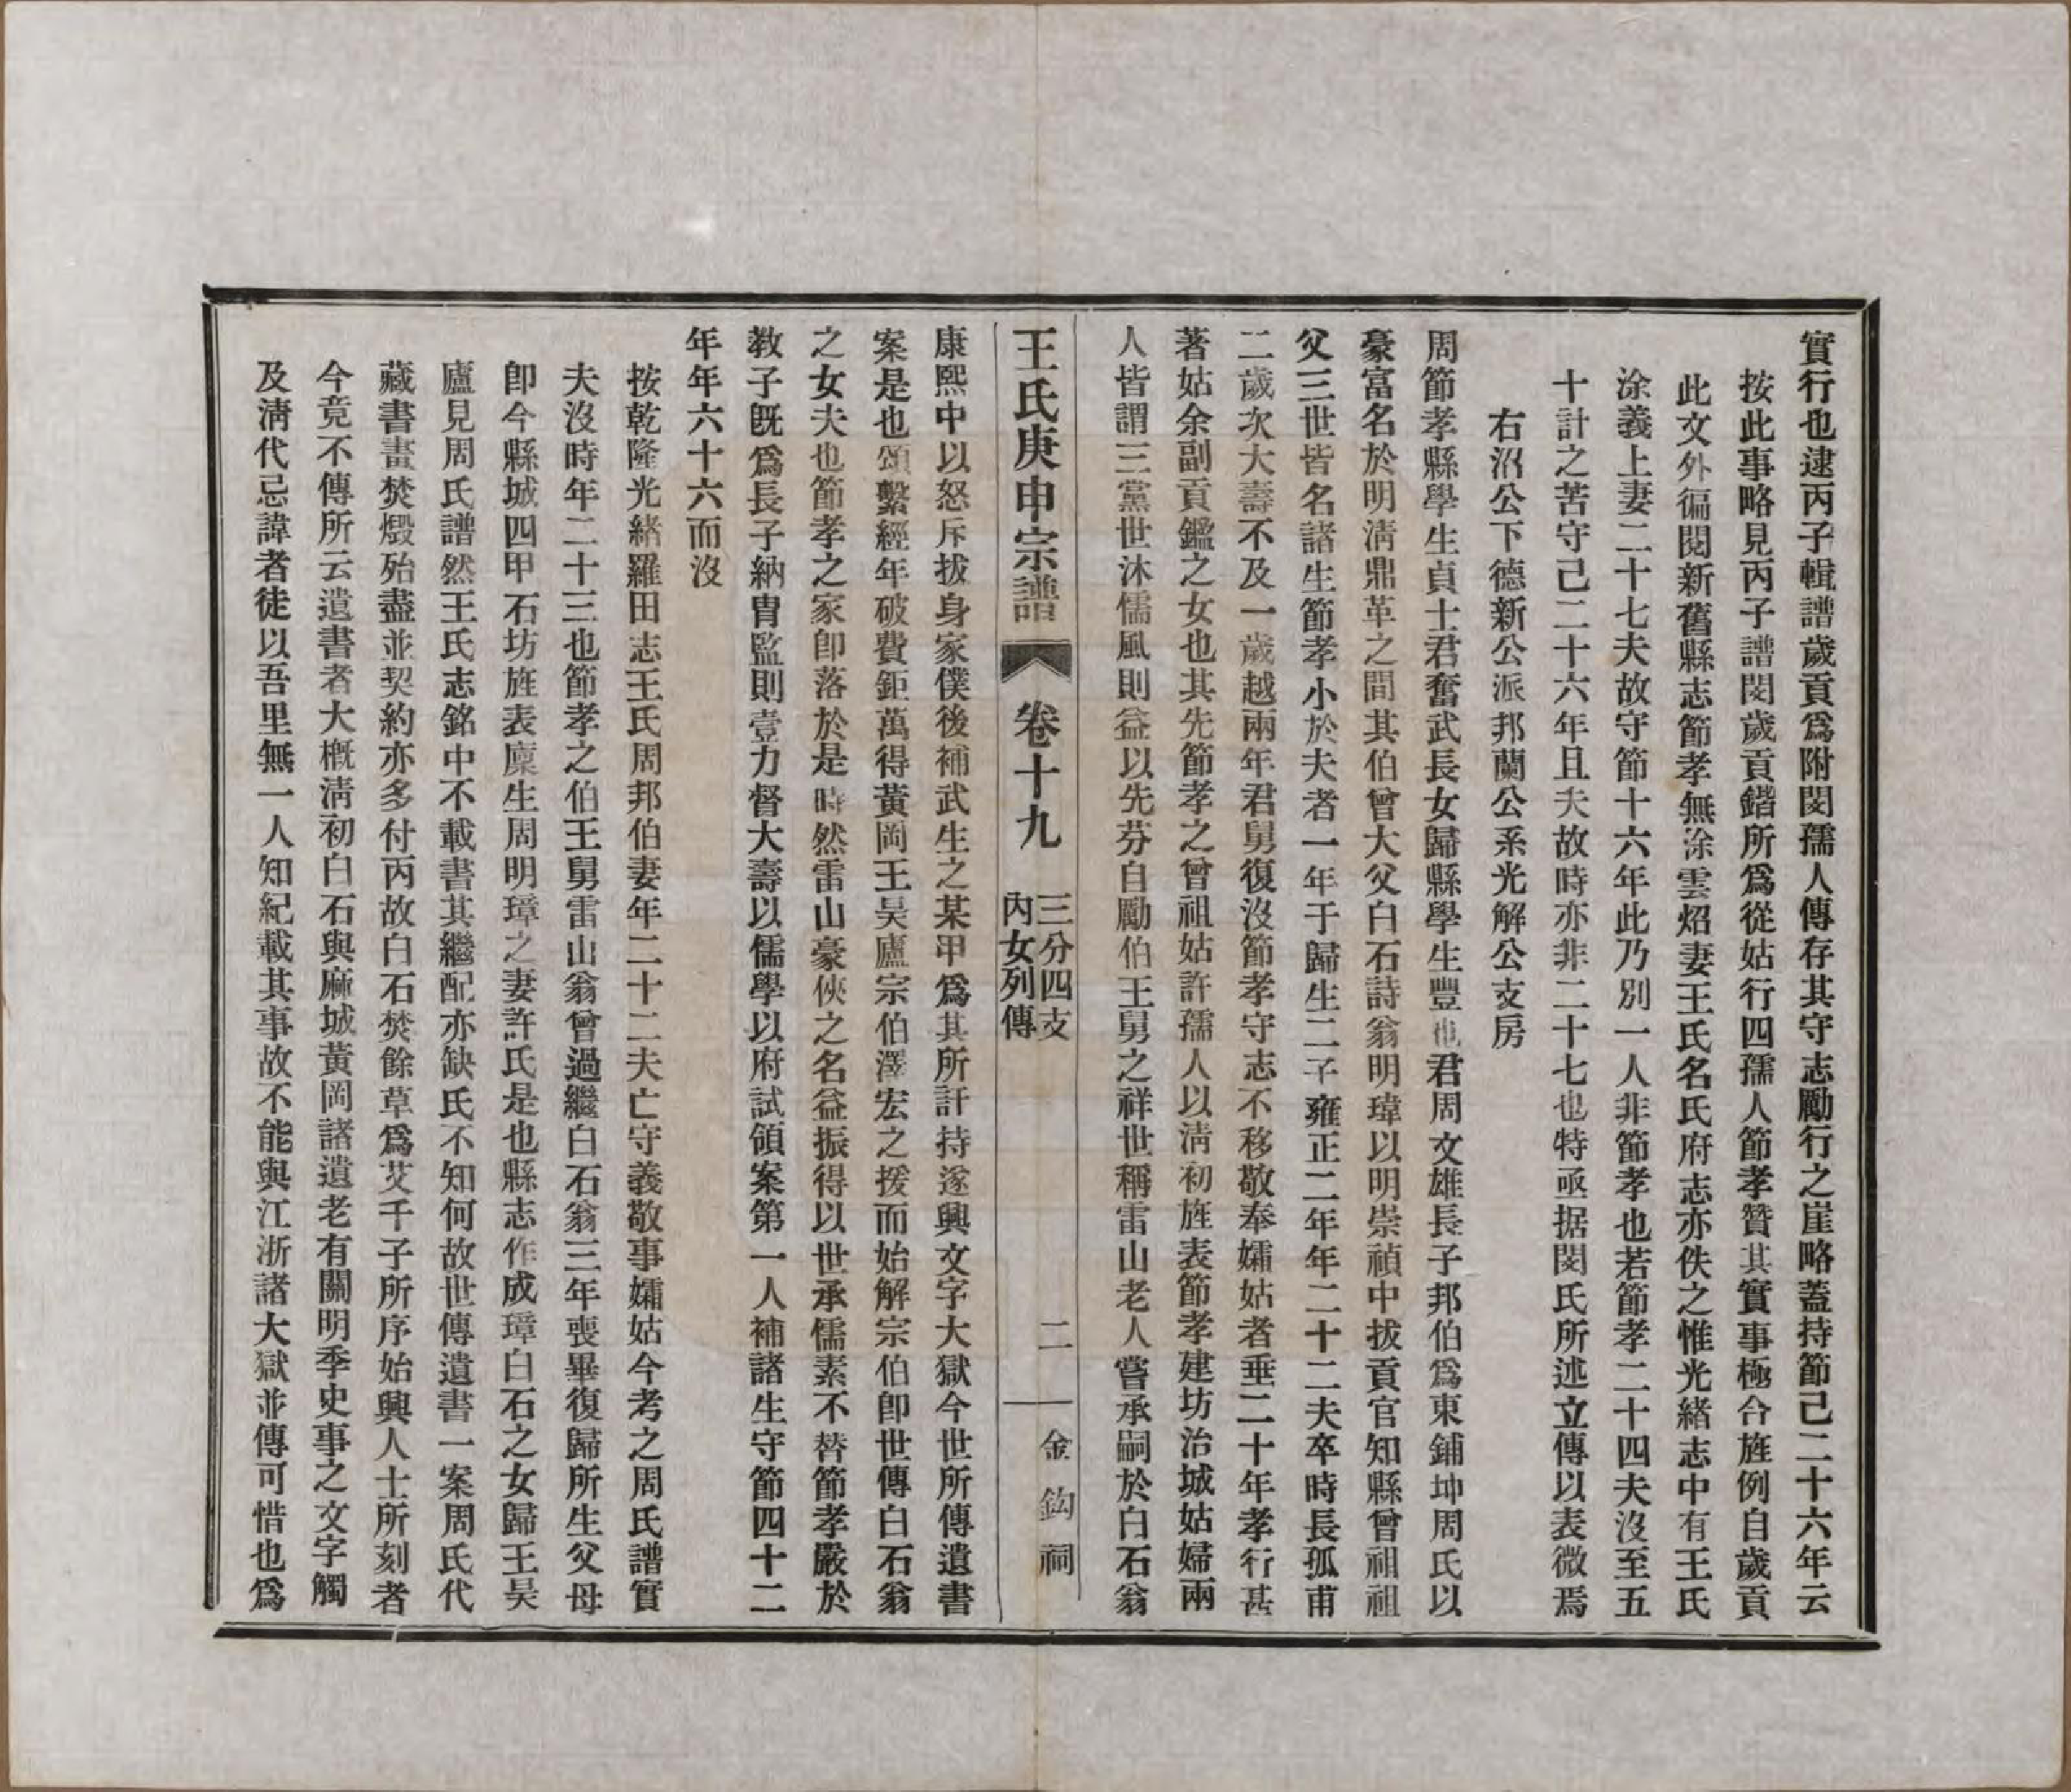 實行也逮丙子輯譜歲貢爲附閔孺人傳存其守志勵行之崖略蓋持節己二十六年云
按此事略見丙子譜閔歲貢鍇所爲從姑行四孺人節孝贊其實事極合旌例自歲貢
此文外徧閱新舊縣志節孝無涂雲炤妻王氏名氏府志亦佚之惟光緒志中有王氏
涂義上妻二十七夫故守節十六年此乃別一人非節孝也若節孝二十四夫沒至五
十計之苦守己二十六年且夫故時亦非二十七也特亟据閔氏所述立傳以表微焉
右沼公下德新公派邦蘭公系光解公支房
周節孝縣學生貞士君奮武長女歸縣學生豐也君周文雄長子邦伯爲東鋪坤周氏以
豪富名於明淸鼎革之間其伯曾大父白石詩翁明瑋以明崇禎中拔貢官知縣曾祖祖
父三世皆名諸生節孝小於夫者一年于歸生二子雍正二年年二十二夫卒時長孤甫
二歲次大壽不及一歲越兩年君舅復沒節孝守志不移敬奉孀姑者垂二十年孝行甚
著姑余副貢鑑之女也其先節孝之曾祖姑許孺人以淸初旌表節孝建坊治城姑婦兩
人皆謂三黨世沐儒風則益以先芬自勵伯王舅之祥世稱雷山老人嘗承嗣於白石翁
王氏庚申宗譜 卷十九 三分四支 內女列傳 二 金鈎祠
康熙中以怒斥拔身家僕後補武生之某甲爲其所訐持遂興文字大獄今世所傳遺書
案是也頌繫經年破費鉅萬得黃岡王昊廬宗伯澤宏之援而始解宗伯卽世傳白石翁
之女夫也節孝之家卽落於是時然雷山豪俠之名益振得以世承儒素不替節孝嚴於
教子旣爲長子納胄監則壹力督大壽以儒學以府試領案第一人補諸生守節四十二
年年六十六而沒
按乾隆光緒羅田志王氏周邦伯妻年二十二夫亡守義敬事孀姑今考之周氏譜實
夫沒時年二十三也節孝之伯王舅雷山翁曾過繼白石翁三年喪畢復歸所生父母
卽今縣城四甲石坊旌表廩生周明璋之妻許氏是也縣志作成璋白石之女歸王昊
廬見周氏譜然王氏志銘中不載書其繼配亦缺氏不知何故世傳遺書一案周氏代
藏書畫焚燬殆盡並契約亦多付丙故白石焚餘草爲艾千子所序始興人士所刻者
今竟不傳所云遺書者大槪淸初白石與麻城黃岡諸遺老有關明季史事之文字觸
及淸代忌諱者徒以吾里無一人知紀載其事故不能與江浙諸大獄並傳可惜也爲